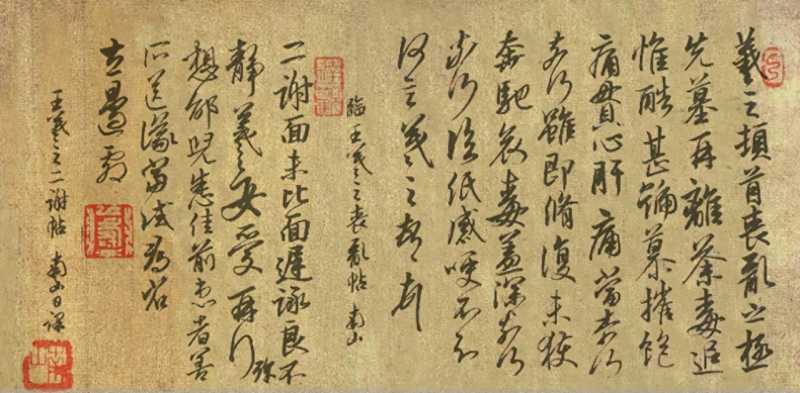 羲之頓首喪亂之極
先墓再離荼毒追
惟酷甚號慕摧絶
痛貫心肝痛當奈何
奈何雖即脩復未獲
奔馳哀毒益深奈何
奈何臨紙感哽不知
何言羲之頓首
臨王羲之喪亂帖 南山
二謝面未比面遲詠良不
靜羲之女愛再拜珎
想邰兒悉佳前患者善
所送議當試尋省
左邊劇
王羲之二謝帖 南山日課